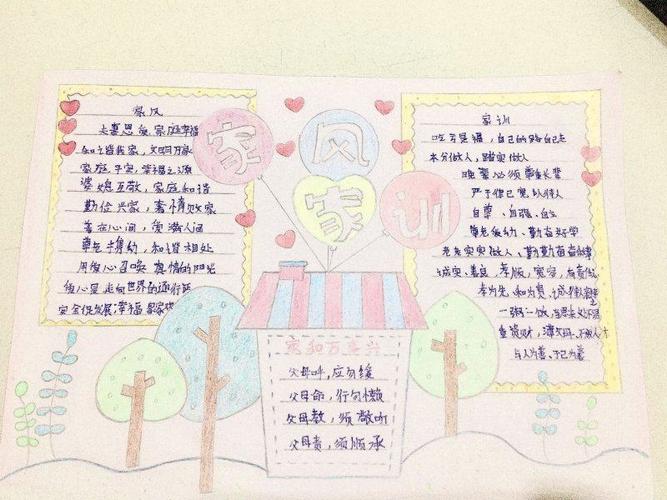 家风
夫妻恩爱,家庭幸福
和谐我家,文明万家
家庭平安,幸福之源
婆媳互敬,家庭和谐
勤俭兴家,奢惰败家
善在心间,爱满人间
尊老携幼,和谐相处
用爱心召唤真情的阳光
信心是走向世界的通行证
安全促发展,幸福
家风
家训
家和万事兴
父母呼,应勿缓
父母命,行勿懒
父母教,须敬听
父母责,须顺承
家训
吃万是福,自己的路自己走
本分做人,踏实做人
晚辈必须尊长辈
严于律己宽以待人
自尊、自强、自立
尊老爱幼、勤奋好学
老老实实做人、勤勤奋奋做事
诚实、善良、孝顺,宽容,有责任
孝为先,和为贵,诚信
一粥一饭,当思来处不易
重资财,薄父母,不成人子
与人为善、于己为善